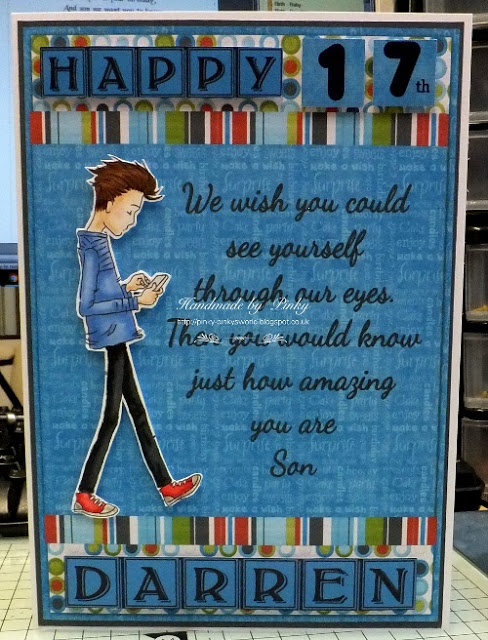 HAPPY 17th
We wish you could
see yourself
through our eyes.
Handmade by Pinky
http://pinky-pinkysworld.blogspot.co.uk
Then you would know
just how amazing
you are
Son
DARREN